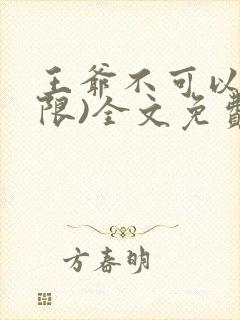 王爷不可以
限)全文免費
方春明